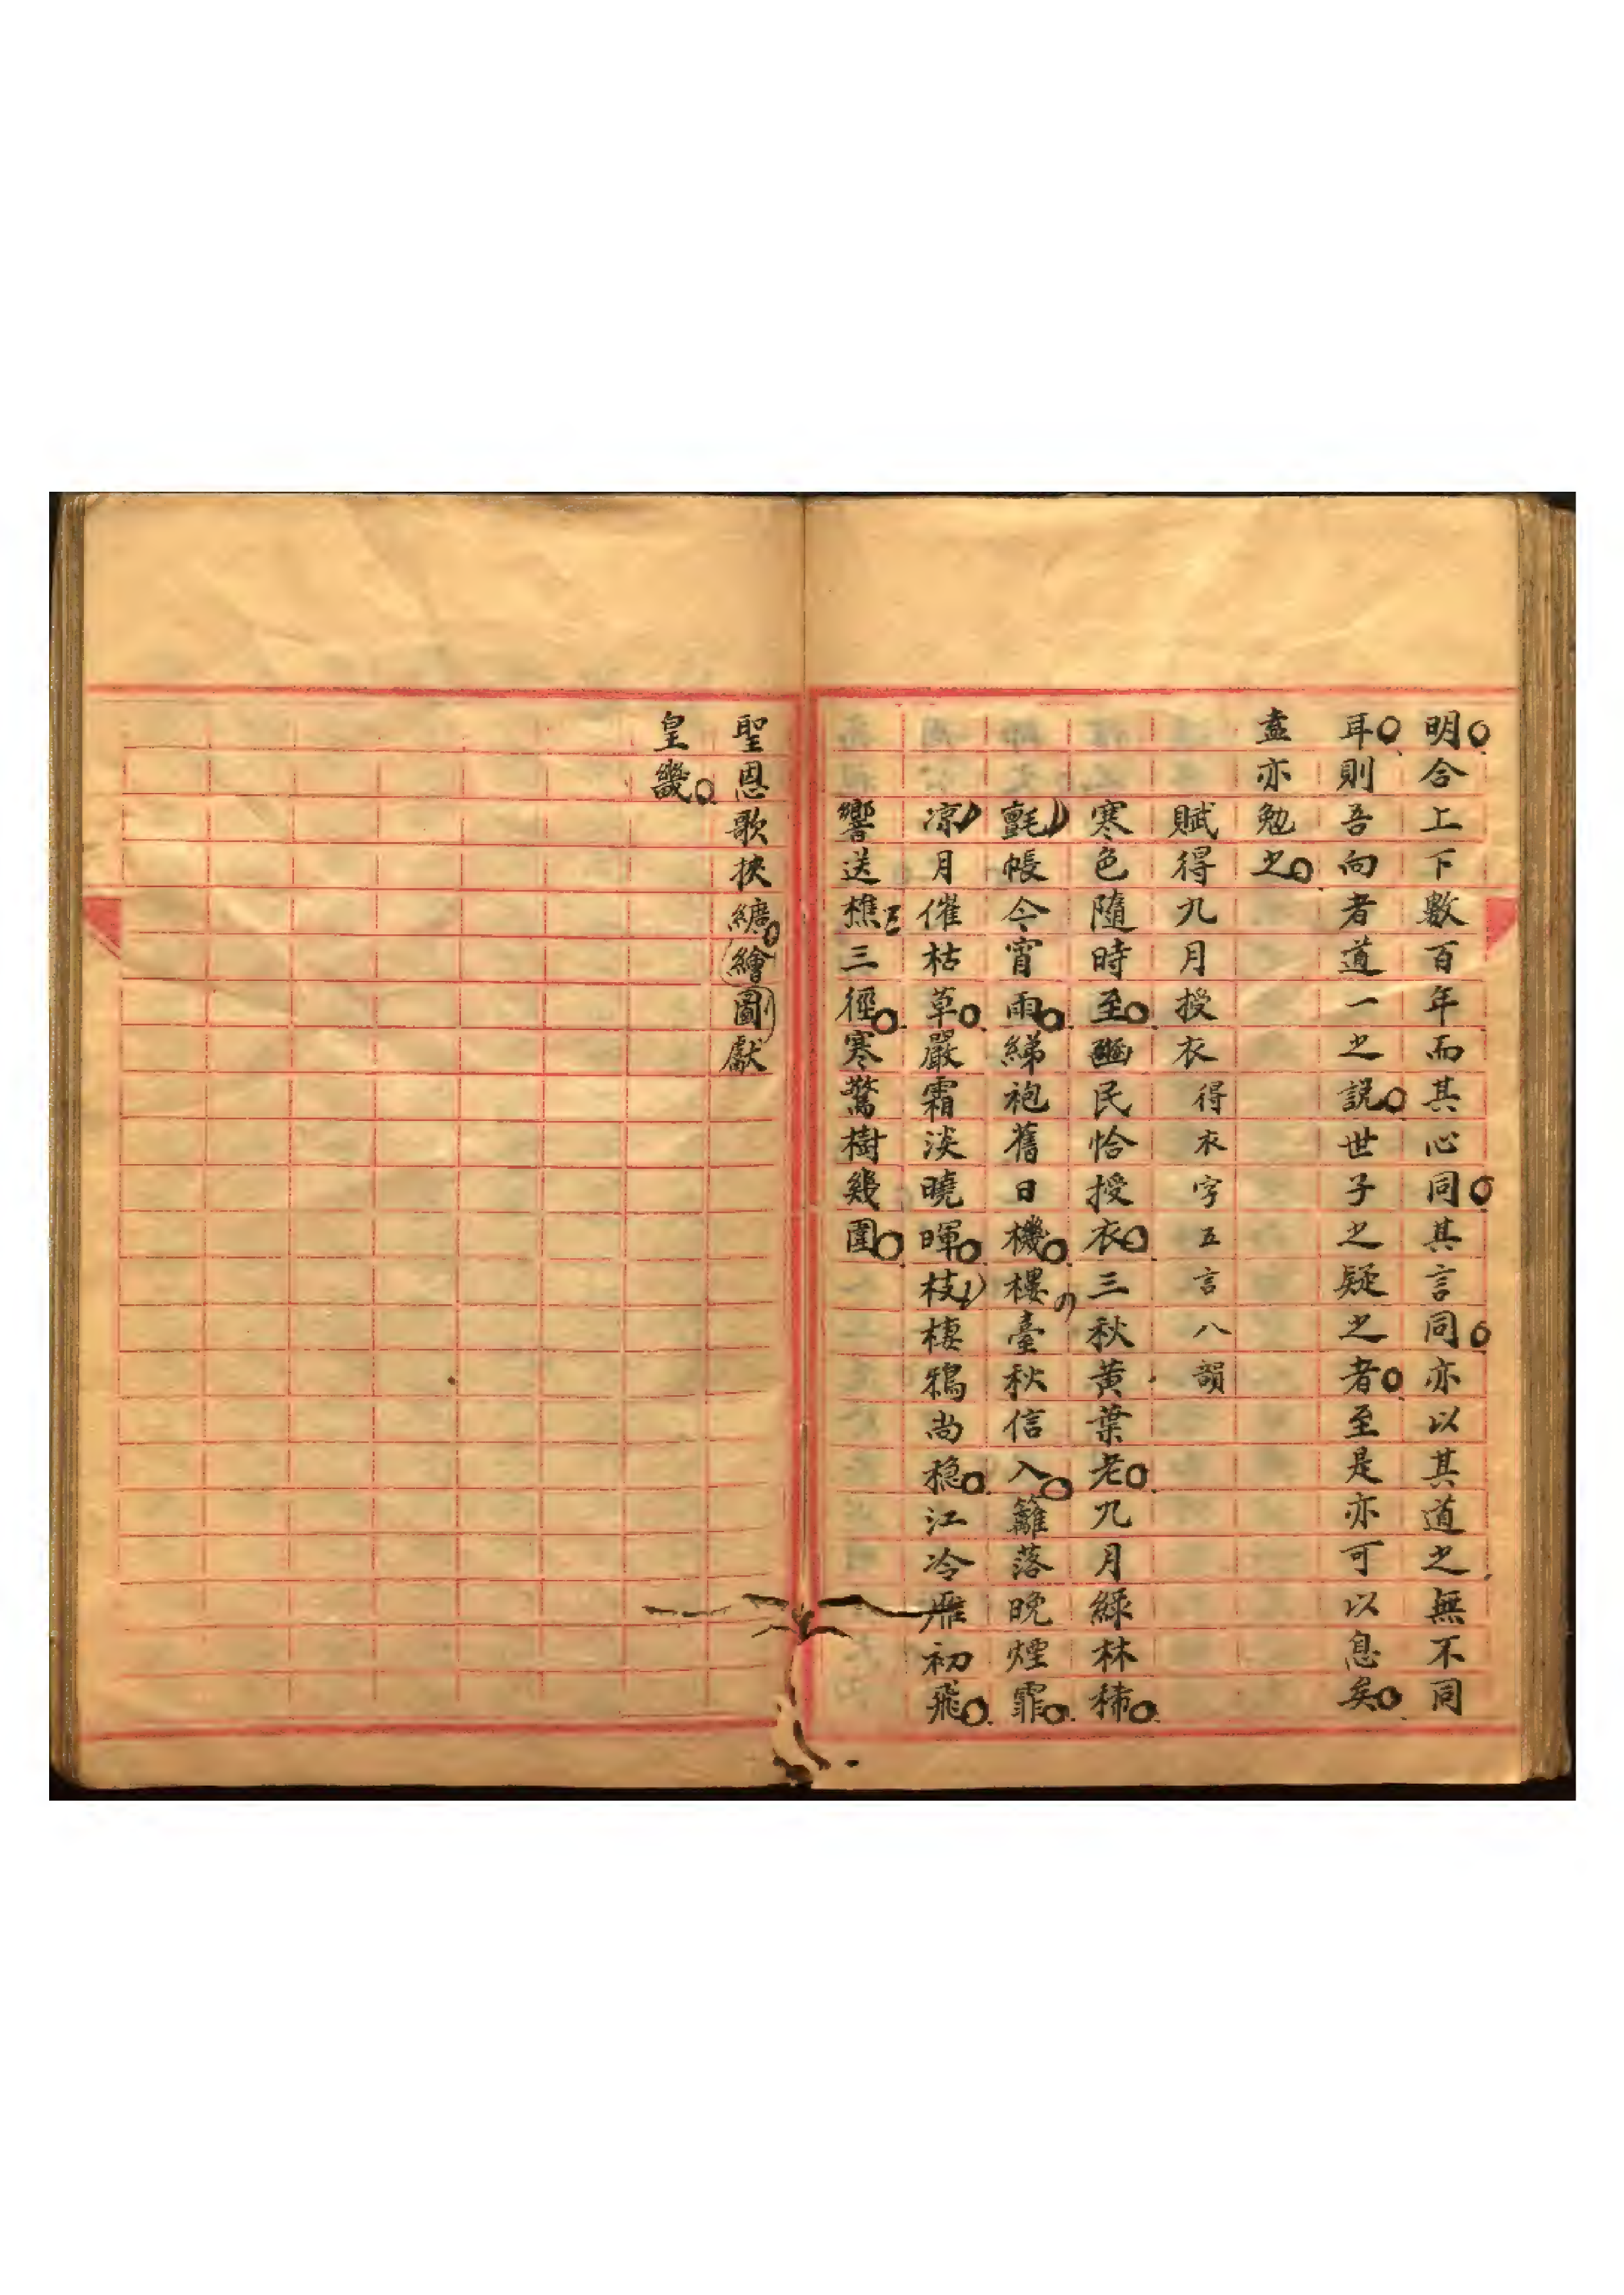 明合上下數百年而其心同其言同亦以其道之無不同
耳則吾向者道一之說世子之疑之者至是亦可以息矣
盍亦勉之
賦得九月授衣得衣字五言八韻
寒色隨時至豳民恰授衣三秋黃葉老九月綠林稀
氈帳今宵雨綈袍舊日機樓臺秋信入籬落晚煙霏
凉月催枯草嚴霜淡曉暉枝棲鴉尚穩江冷雁初飛
響送樵三徑寒驚樹幾圍
聖恩歌挾纊繪圖獻
皇畿